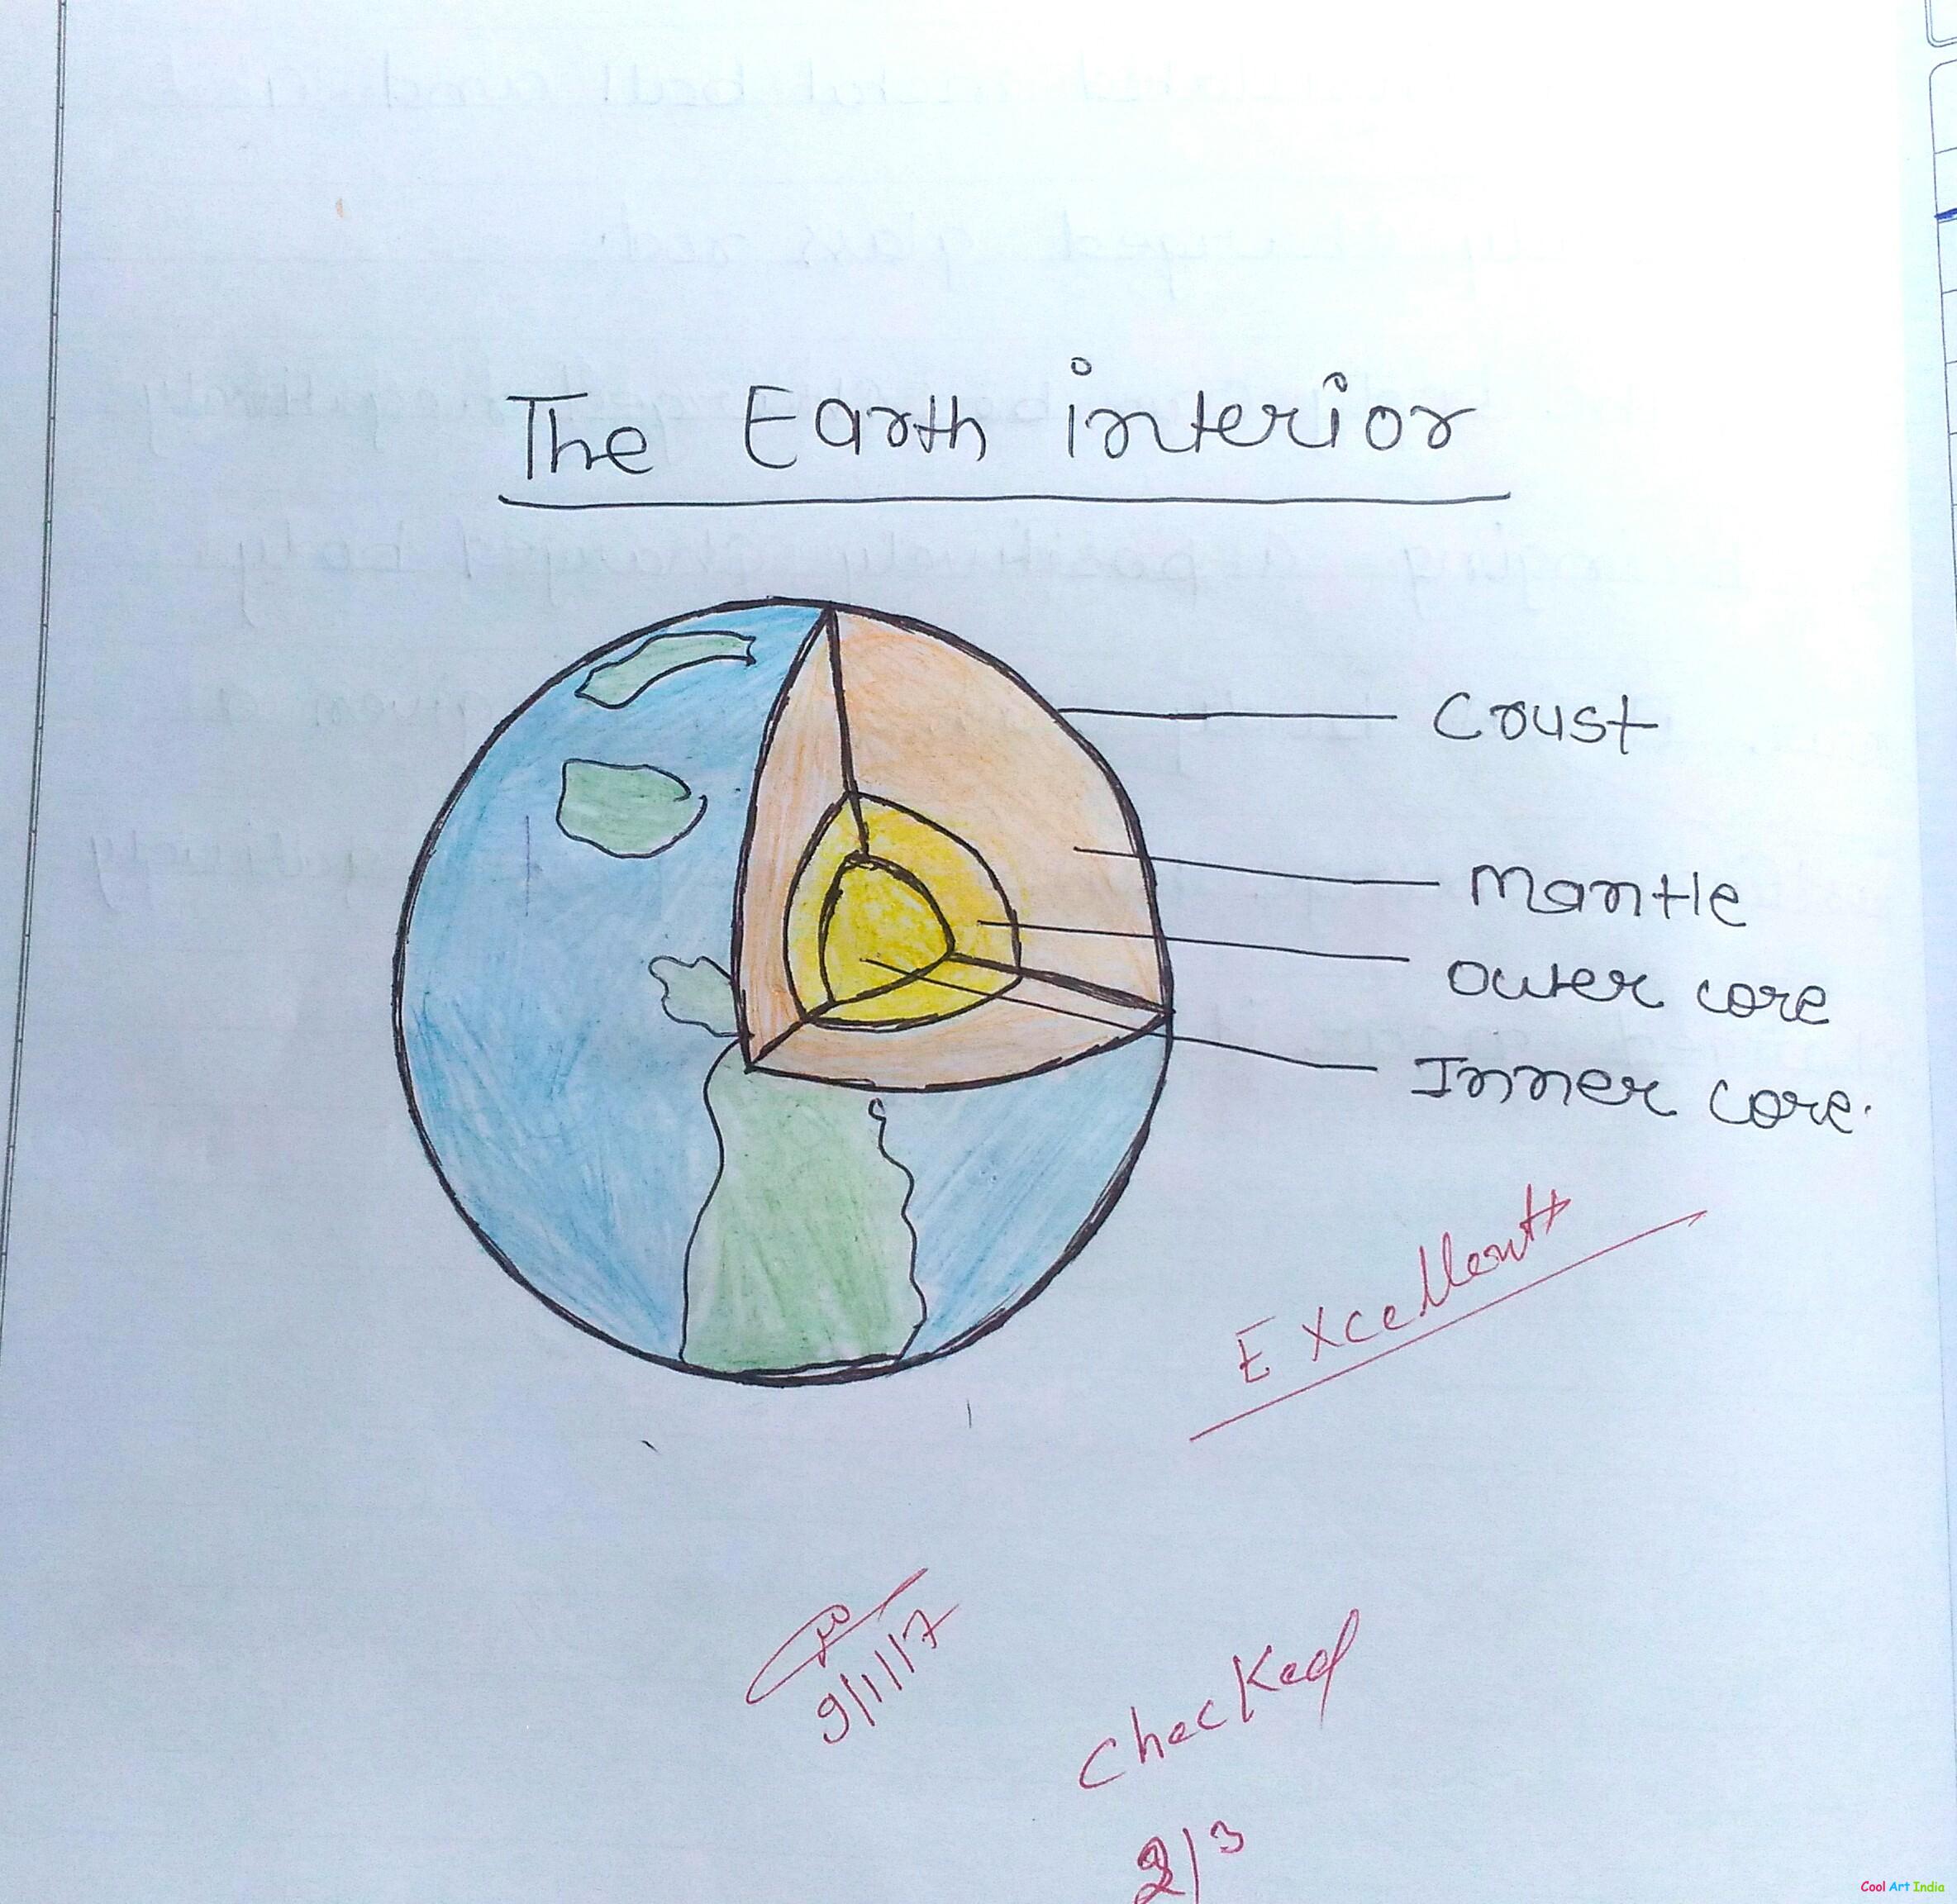 The Earth interior
Crust
Mantle
Outer core
Inner core.
Excellent
9/1/17
checked
2/3
Cool Art India